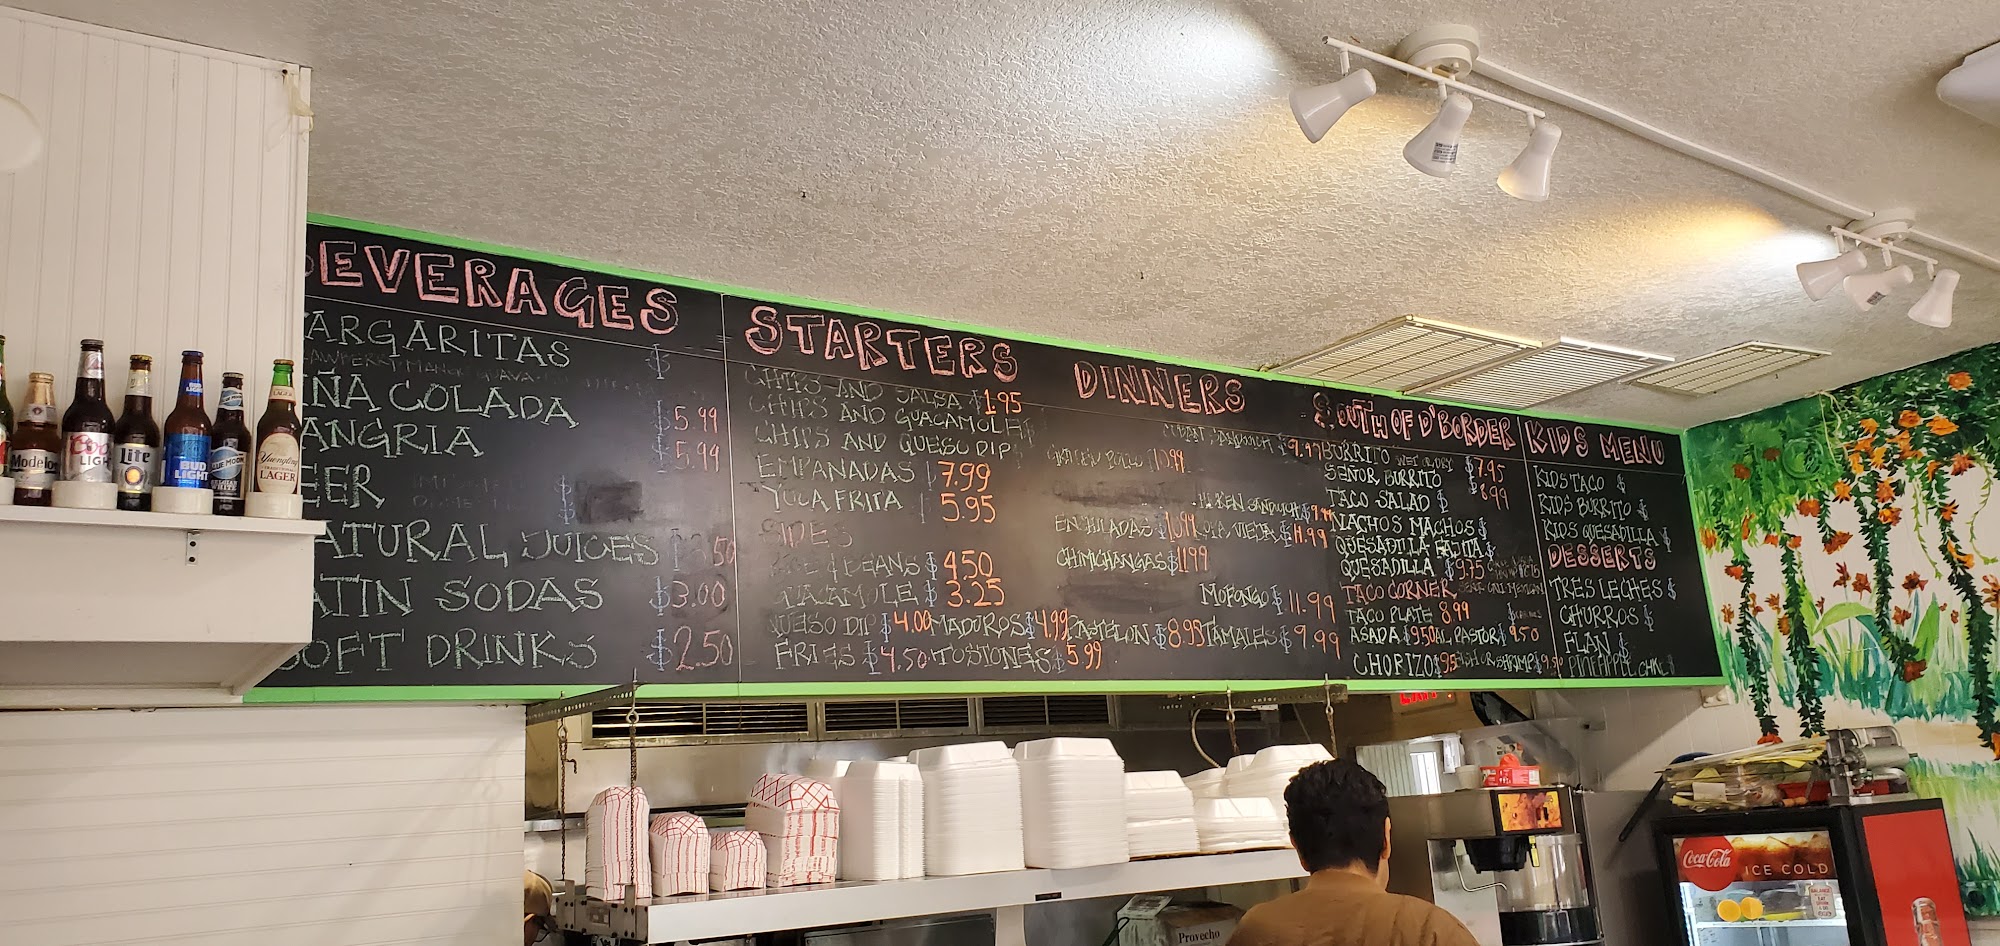 BEVERAGES
MARGARITAS $
PIÑA COLADA $5.99
SANGRIA $5.99
BEER $
NATURAL JUICES
LATIN SODAS $3.00
SOFT DRINKS $2.50
STARTERS
CHIPS AND SALSA $1.95
CHIPS AND GUACAMOLE $
CHIPS AND QUESO DIP
EMPANADAS 7.99
YUCA FRITA 5.95
SIDES
BEANS $4.50
GUACAMOLE $3.25
QUESO DIP $4.00 MADUROS $4.99
FRIES $4.50 TOSTONES $5.99
DINNERS
CUBAN SANDWICH $9.99
10.99
SANDWICH $9.99
ENCHILADAS VIEJA $11.99
CHIMICHANGAS $11.99
MOFONGO $11.99
PASTELON $8.99 TAMALES $9.99
SOUTH OF D'BORDER
BURRITO WET OR DRY $7.95
SEÑOR BURRITO $8.99
TACO SALAD $
NACHOS MACHOS $
QUESADILLA FAJITA $
QUESADILLA $9.75
TACO CORNER
TACO PLATE 8.99
ASADA $9.50 AL PASTOR $9.50
CHORIZO FISH OR SHRIMP $9.50
KIDS MENU
KIDS TACO $
KIDS BURRITO $
KIDS QUESADILLA $
DESSERTS
TRES LECHES $
CHURROS $
FLAN $
PINEAPPLE CAKE
Modelo
Coors
LIGHT
Lite
BUD
LIGHT
BLUE MOON
BELGIAN
WHITE
Yuengling
LAGER
Provecho
Coca-Cola
ICE COLD